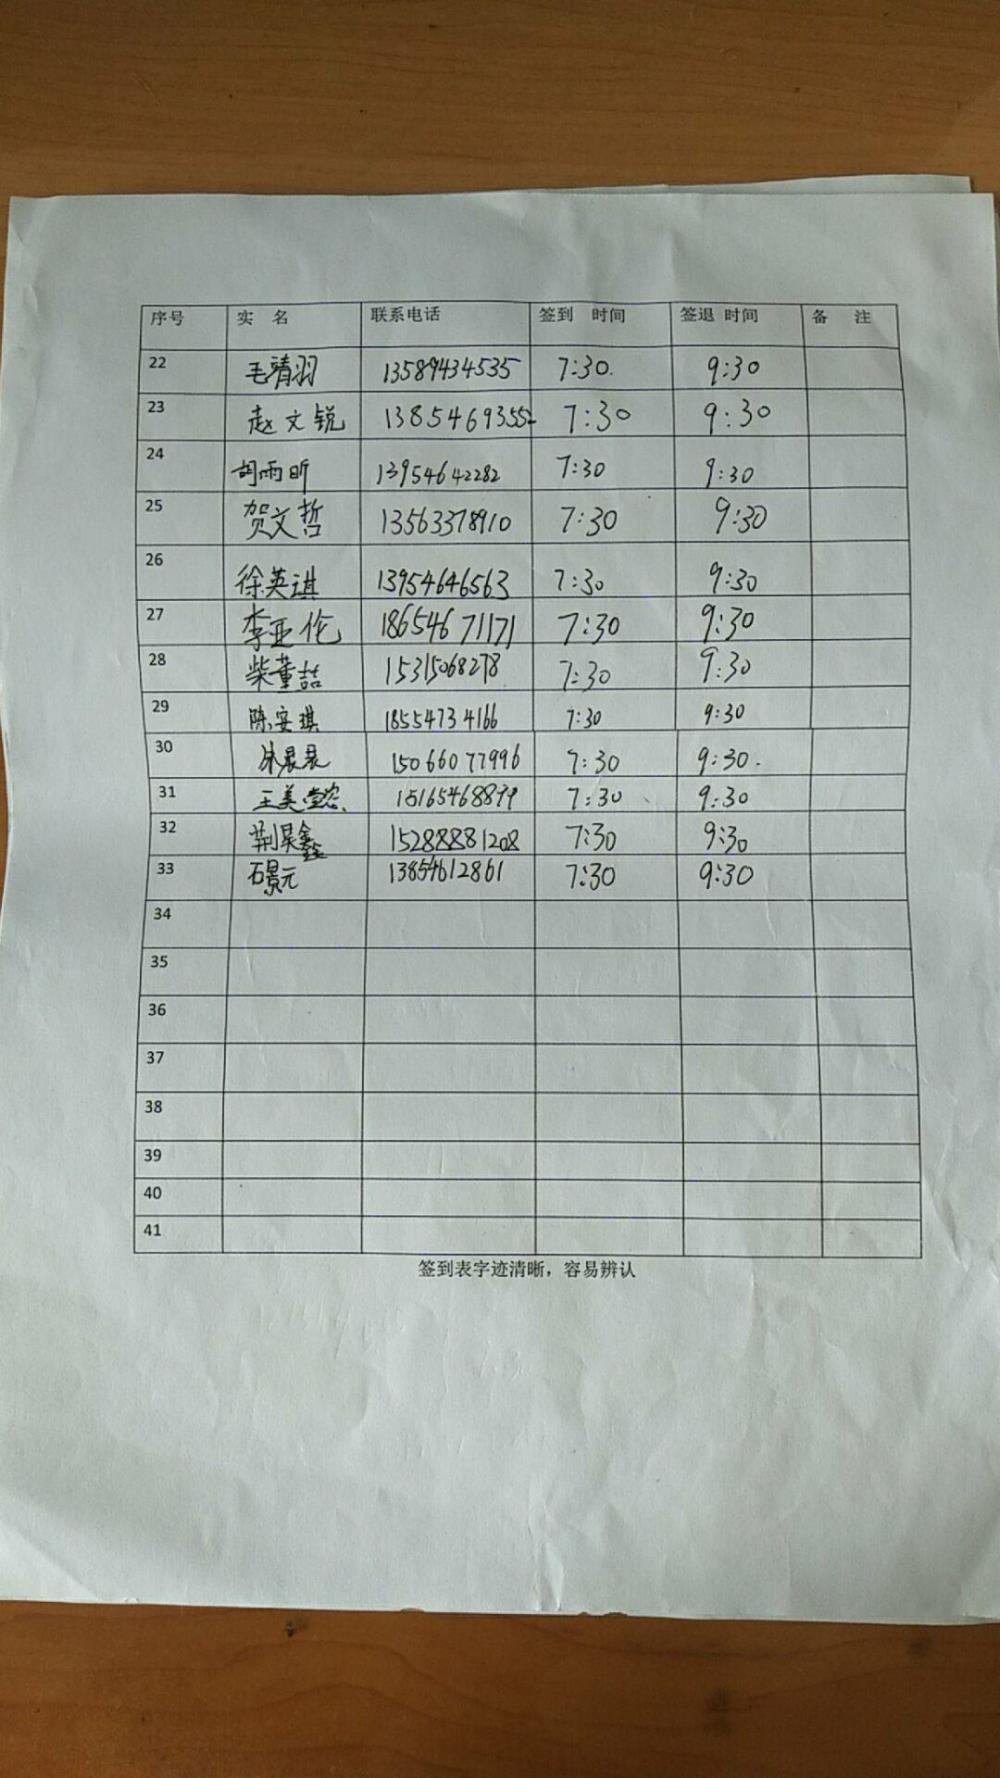 序号 实 名 联系电话 签到 时间 签退 时间 备 注
22 毛靖羽 13589434535 7:30. 9:30
23 赵文锐 13854693552 7:30 9:30
24 胡雨昕 13954642282 7:30 9:30
25 贺文哲 13563378910 7:30 9:30
26 徐英琪 13954646563 7:30 9:30
27 李亚伦 18654671171 7:30 9:30
28 柴董喆 15315068278 7:30 9:30
29 陈安琪 18554734166 7:30 9:30
30 15066077996 7:30 9:30.
31 王美 15165468899 7:30 9:30
32 荆昊鑫 15288881208 7:30 9:30
33 石景元 13854612861 7:30 9:30
34
35
36
37
38
39
40
41
签到表字迹清晰，容易辨认